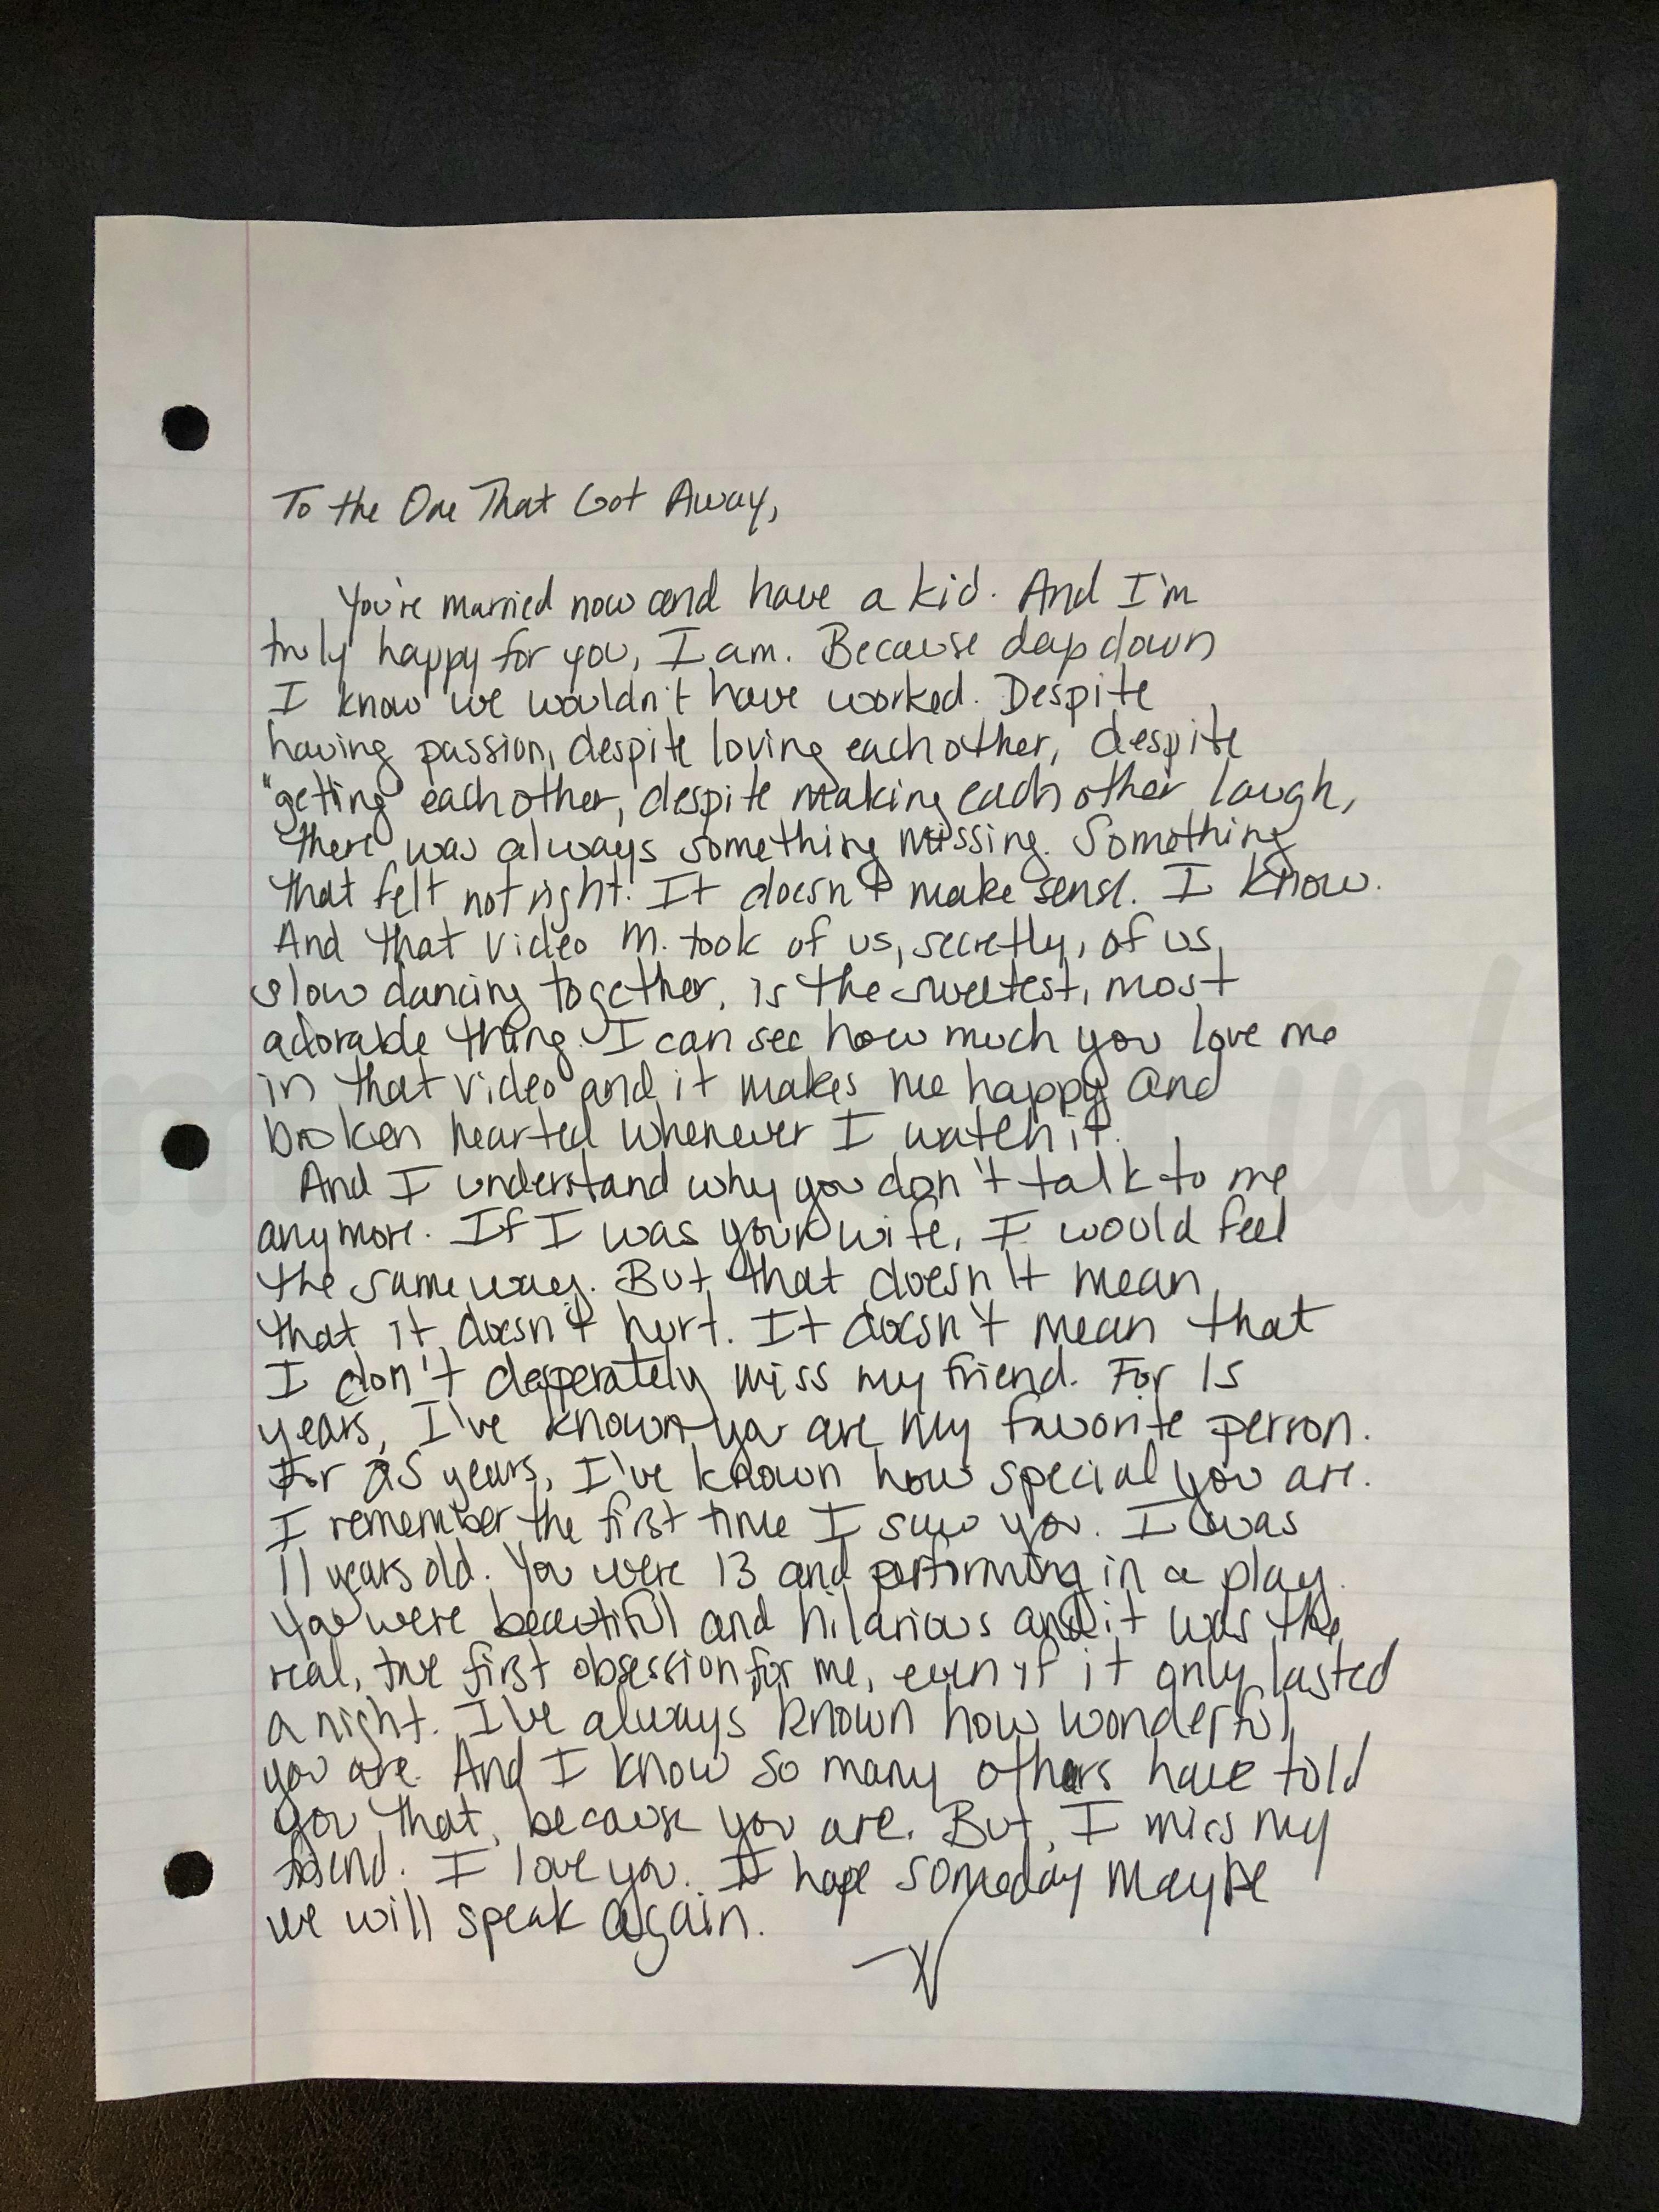 To the One That Got Away,
You're married now and have a kid. And I'm
truly happy for you, I am. Because deep down
I know we wouldn't have worked. Despite
having passion, despite loving each other, despite
"getting" each other, despite making each other laugh,
there was always something missing. Something
that felt not right. It doesn't make sense. I know.
And that video M. took of us, secretly, of us
slow dancing together, is the sweetest, most
adorable thing. I can see how much you love me
in that video and it makes me happy and
broken hearted whenever I watch it.
And I understand why you don't talk to me
anymore. If I was your wife, I would feel
the same way. But that doesn't mean
that it doesn't hurt. It doesn't mean that
I don't desperately miss my friend. For 15
years, I've known you are my favorite person.
For 25 years, I've known how special you are.
I remember the first time I saw you. I was
11 years old. You were 13 and performing in a play.
You were beautiful and hilarious and it was the
real, true first obsession for me, even if it only lasted
a night. I've always known how wonderful
you are. And I know so many others have told
you that, because you are. But, I miss my
friend. I love you. I hope someday maybe
we will speak again.
ink